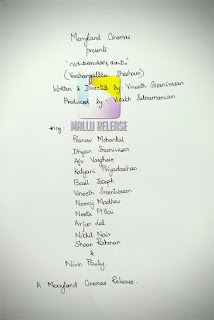 Merryland Cinemas
presents
"വർഷങ്ങൾക്കു ശേഷം"
(Varshangalkku Shesham)
Written & Directed By: Vineeth Sreenivasan
Produced by : Visakh Subramaniam
MALLU RELEASE
ring :
Pranav Mohanlal
Dhyan Sreenivasan
Aju Varghese
Kalyani Priyadarshan
Basil Joseph
Vineeth Sreenivasan
Neeraj Madhav
Neeta Pillai
Arjun Lal
Nikhil Nair
Shaan Rahman
&
Nivin Pauly.
A Merryland Cinemas Release.